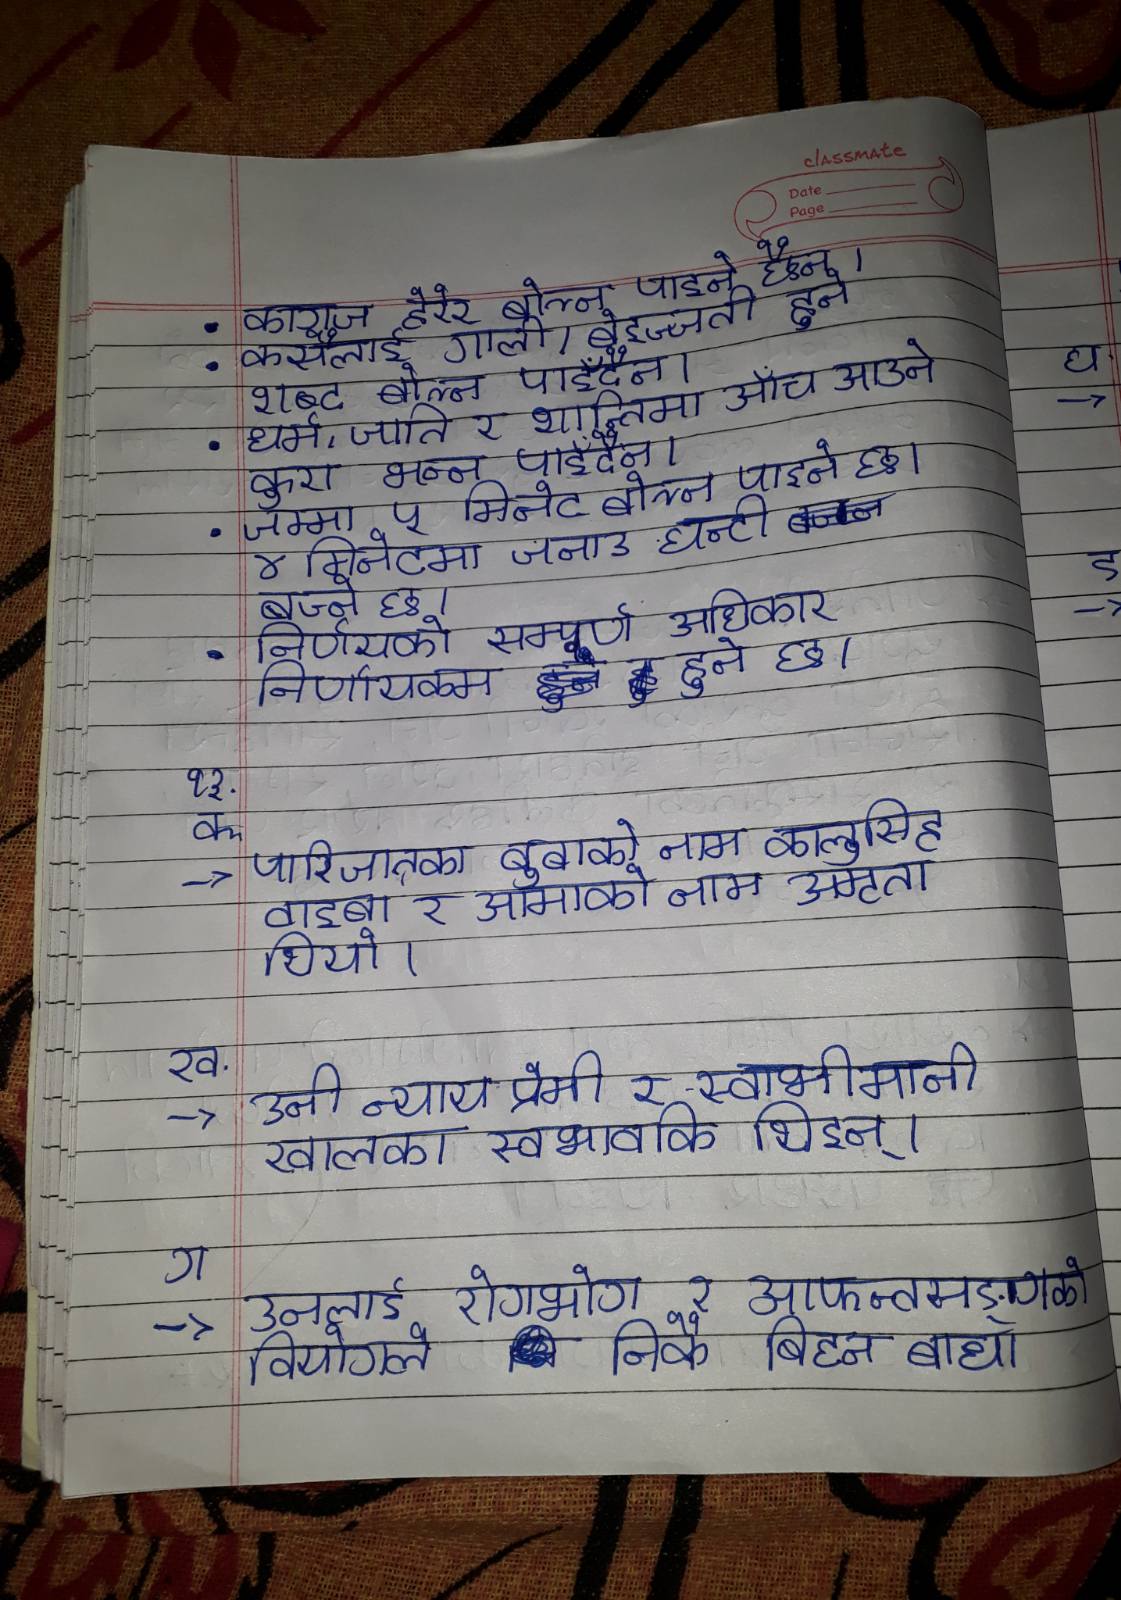 classmate
Date
Page
• कागज हेरेर बोल्न पाइने छैन् ।
• कसैलाई गाली, बेइज्जती हुने
शब्द बोल्न पाइँदैन ।
• धर्म, जाति र शान्तिमा आँच आउने
कुरा भन्न पाइँदैन ।
• जम्मा ५ मिनेट बोल्न पाइने छ ।
४ मिनेटमा जनाउ घन्टी
बज्ने छ ।
• निर्णयको सम्पूर्ण अधिकार
निर्णायकम हुने छ ।
१३.
क
→ पारिजातका बुबाको नाम कालुसिह
वाइबा र आमाको नाम अमृता
थियो ।
ख.
→ उनी न्याय प्रेमी र स्वाभीमानी
खालका स्वभावकि थिइन् ।
ग
→ उनलाई रोगभोग र आफन्तसङ्गको
वियोगले निकै बिहन बाधा
घ
→
ङ
→